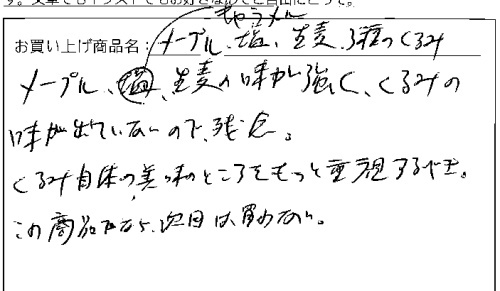 す。文章でもイラストでもお好きなのでご自由にどうぞ。
キャラメル
お買い上げ商品名：メープル、塩、生麦、3種のくるみ
メープル、塩、生麦の味が強く、くるみの
味が出ていないので、残念。
くるみ自体の美味のところをもっと重視するべき。
この商品なら、次回は買わない。